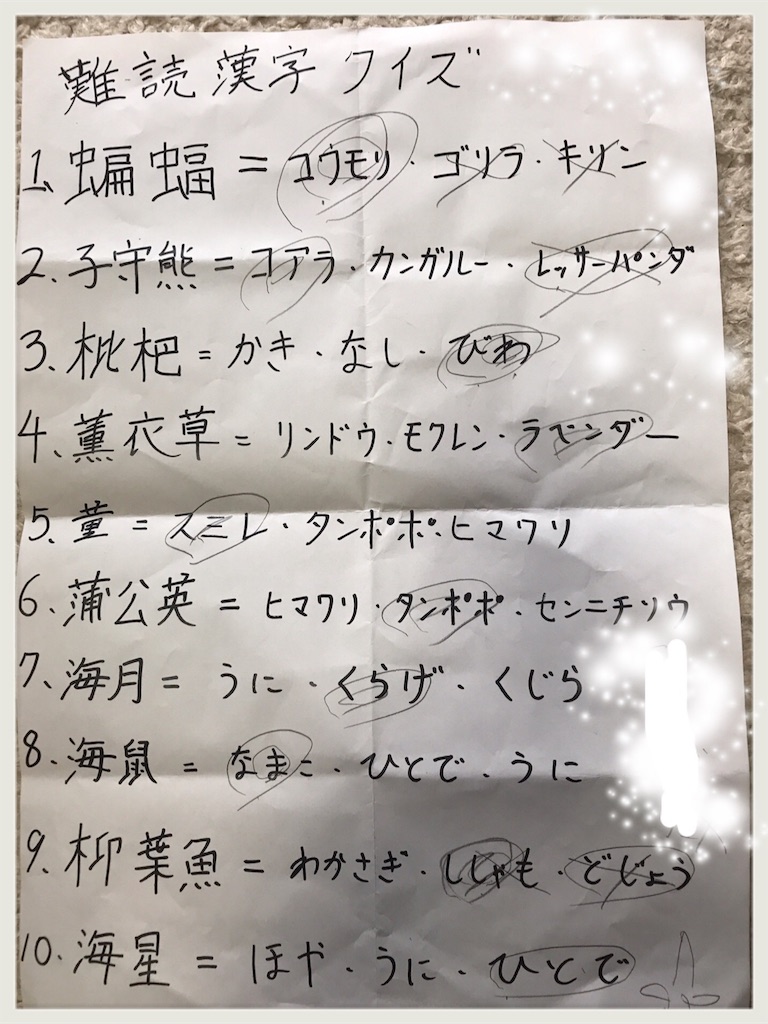 難読漢字クイズ
1、蝙蝠=コウモリ・ゴリラ・キリン
2、子守熊=コアラ・カンガルー・レッサーパンダ
3、枇杷=かき・なし・びわ
4、薫衣草=リンドウ・モクレン・ラベンダー
5、菫=スミレ・タンポポ・ヒマワリ
6、蒲公英=ヒマワリ・タンポポ・センニチソウ
7、海月=うに・くらげ・くじら
8、海鼠=なまこ・ひとで・うに
9、柳葉魚=わかさぎ・ししゃも・どじょう
10、海星=ほや・うに・ひとで